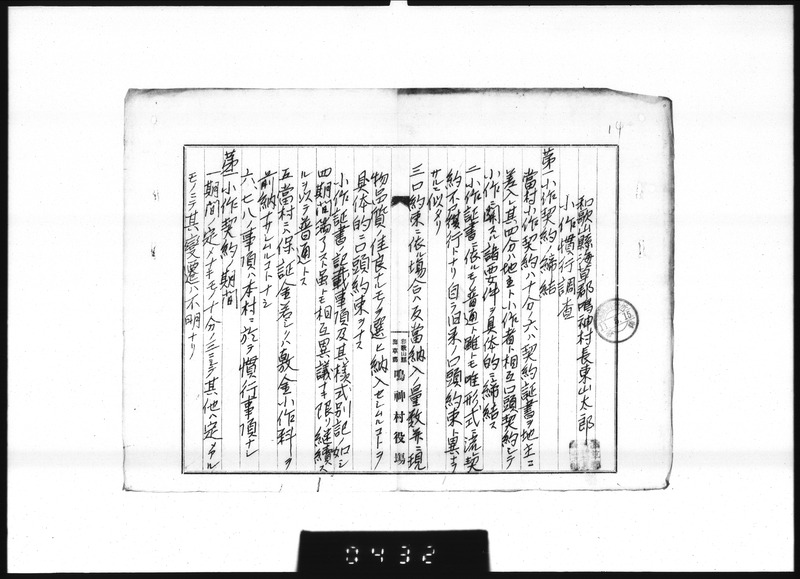 14
和歌山縣海草郡鳴神村長東山太郎
小作慣行調査
第一小作契約ノ締結
當村小作契約ハ十分ノ六ハ契約証書ヲ地主ニ
差入レ其四分ハ地主ト小作者ト相互口頭契約シテ
小作ニ関スル諸要件ヲ具体的ニ締結ス
二小作証書ニ依ルモノ普通ト雖トモ唯形式ニ流レ契
約不履行トナリ自ラ旧来ノ口頭約束ト異ナラ
サルニ似タリ
三口約束ニ依ル場合ハ反當納入ノ量数並現
和歌山縣
海草郡
鳴神村役場
物品質ノ佳良ナルモノヲ選ヒ納入セシムルコトヲ
具体的ニ口頭約束ヲナス
小作証書ノ記載事項及其樣式別記ノ如シ
四期間満了スト雖トモ相互異議ナキ限リ継續ス
ルヲ以テ普通トス
五當村ニハ保証金若シクハ敷金小作料ヲ
前納セシムルコトナシ
六、七、八ノ事項ハ本村ニ於テ慣行事項ナシ
第二小作契約ノ期間
一期間ノ定メナキモノ十分ノ三ニシテ其他ハ定メアル
モノニテ其變遷ハ不明ナリ
0432